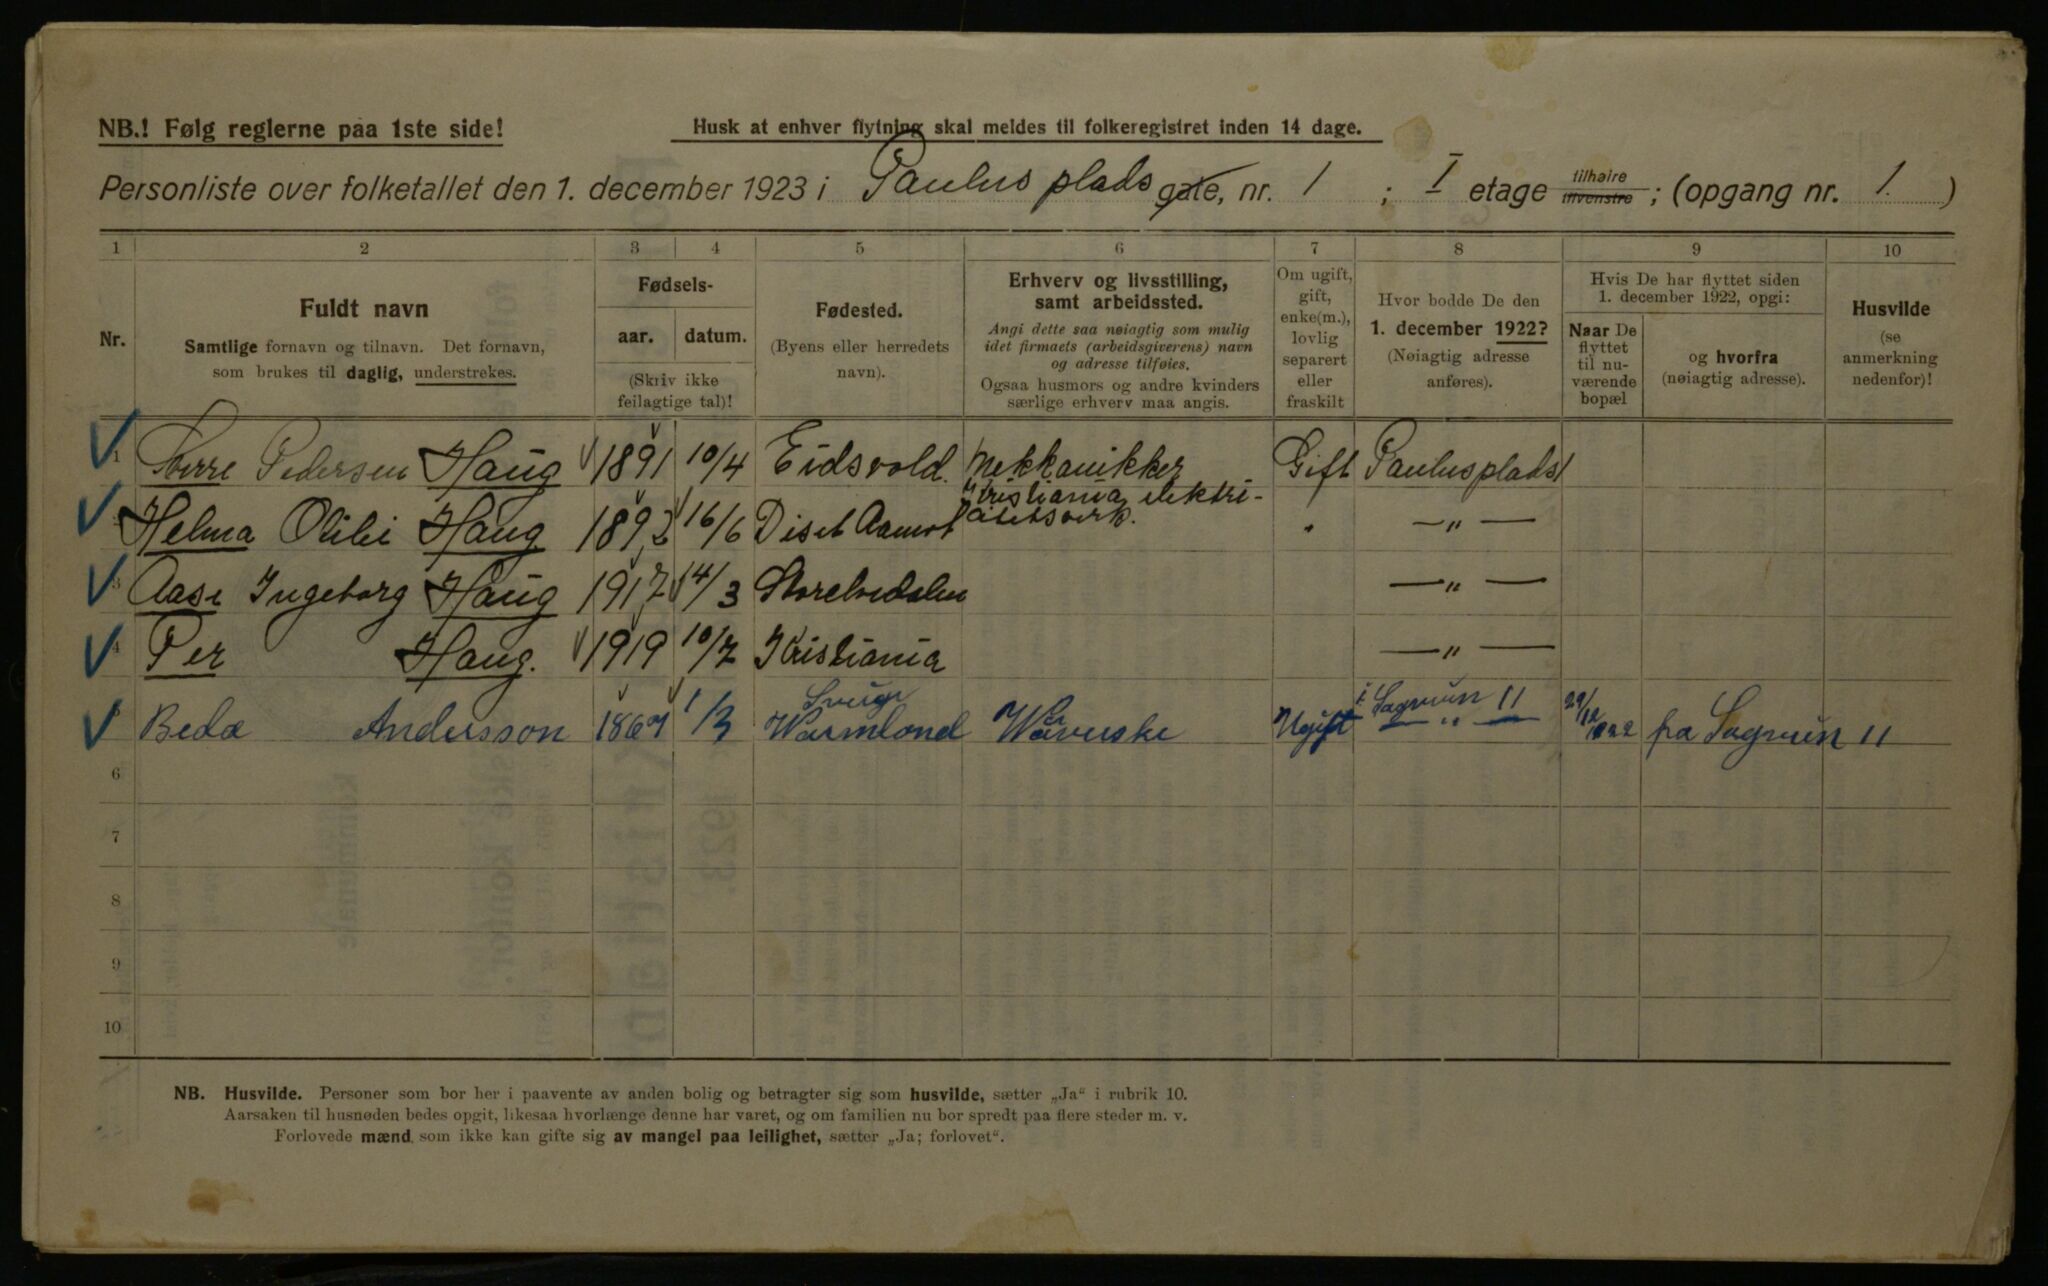 NB.! Følg reglerne paa 1ste side!
Husk at enhver flytning skal meldes til folkeregistret inden 14 dage.
Personliste over folketallet den 1. december 1923 i Paulus plads gate, nr. 1 ; I etage tilhøire tilvenstre ; (opgang nr. 1. )
1 2 3 4 5 6 7 8 9 10
Nr.
Fuldt navn
Samtlige fornavn og tilnavn. Det fornavn,
som brukes til daglig, understrekes.
Fødsels-
aar. datum.
(Skriv ikke
feilagtige tal)!
Fødested.
(Byens eller herredets
navn).
Erhverv og livsstilling,
samt arbeidssted.
Angi dette saa nøiagtig som mulig
idet firmaets (arbeidsgiverens) navn
og adresse tilføies.
Ogsaa husmors og andre kvinders
særlige erhverv maa angis.
Om ugift,
gift,
enke(m.),
lovlig
separert
eller
fraskilt
Hvor bodde De den
1. december 1922?
(Nøiagtig adresse
anføres).
Hvis De har flyttet siden
1. december 1922, opgi:
Naar De
flyttet
til nu-
værende
bopæl
og hvorfra
(nøiagtig adresse).
Husvilde
(se
anmerkning
nedenfor)!
1 Pedersen Haug 1891 10/4 Eidsvold. Mekkanikker Gift Paulusplads 1
Kristiania elektri-
Helma Haug 1892 16/6 Diset citetsverk. " — " —
3 Aase Ingeborg Haug 1917 14/3 — " —
4 Per Haug. 1919 10/7 Kristiania — " —
Sverige Sagveien 11 29/12
Beda Andersson 1867 1/3 Warmland Ugift — " — 1922 fra Sagveien 11
6
7
8
9
10
NB. Husvilde. Personer som bor her i paavente av anden bolig og betragter sig som husvilde, sætter „Ja“ i rubrik 10.
Aarsaken til husnøden bedes opgit, likesaa hvorlænge denne har varet, og om familien nu bor spredt paa flere steder m. v.
Forlovede mænd som ikke kan gifte sig av mangel paa leilighet, sætter „Ja; forlovet“.